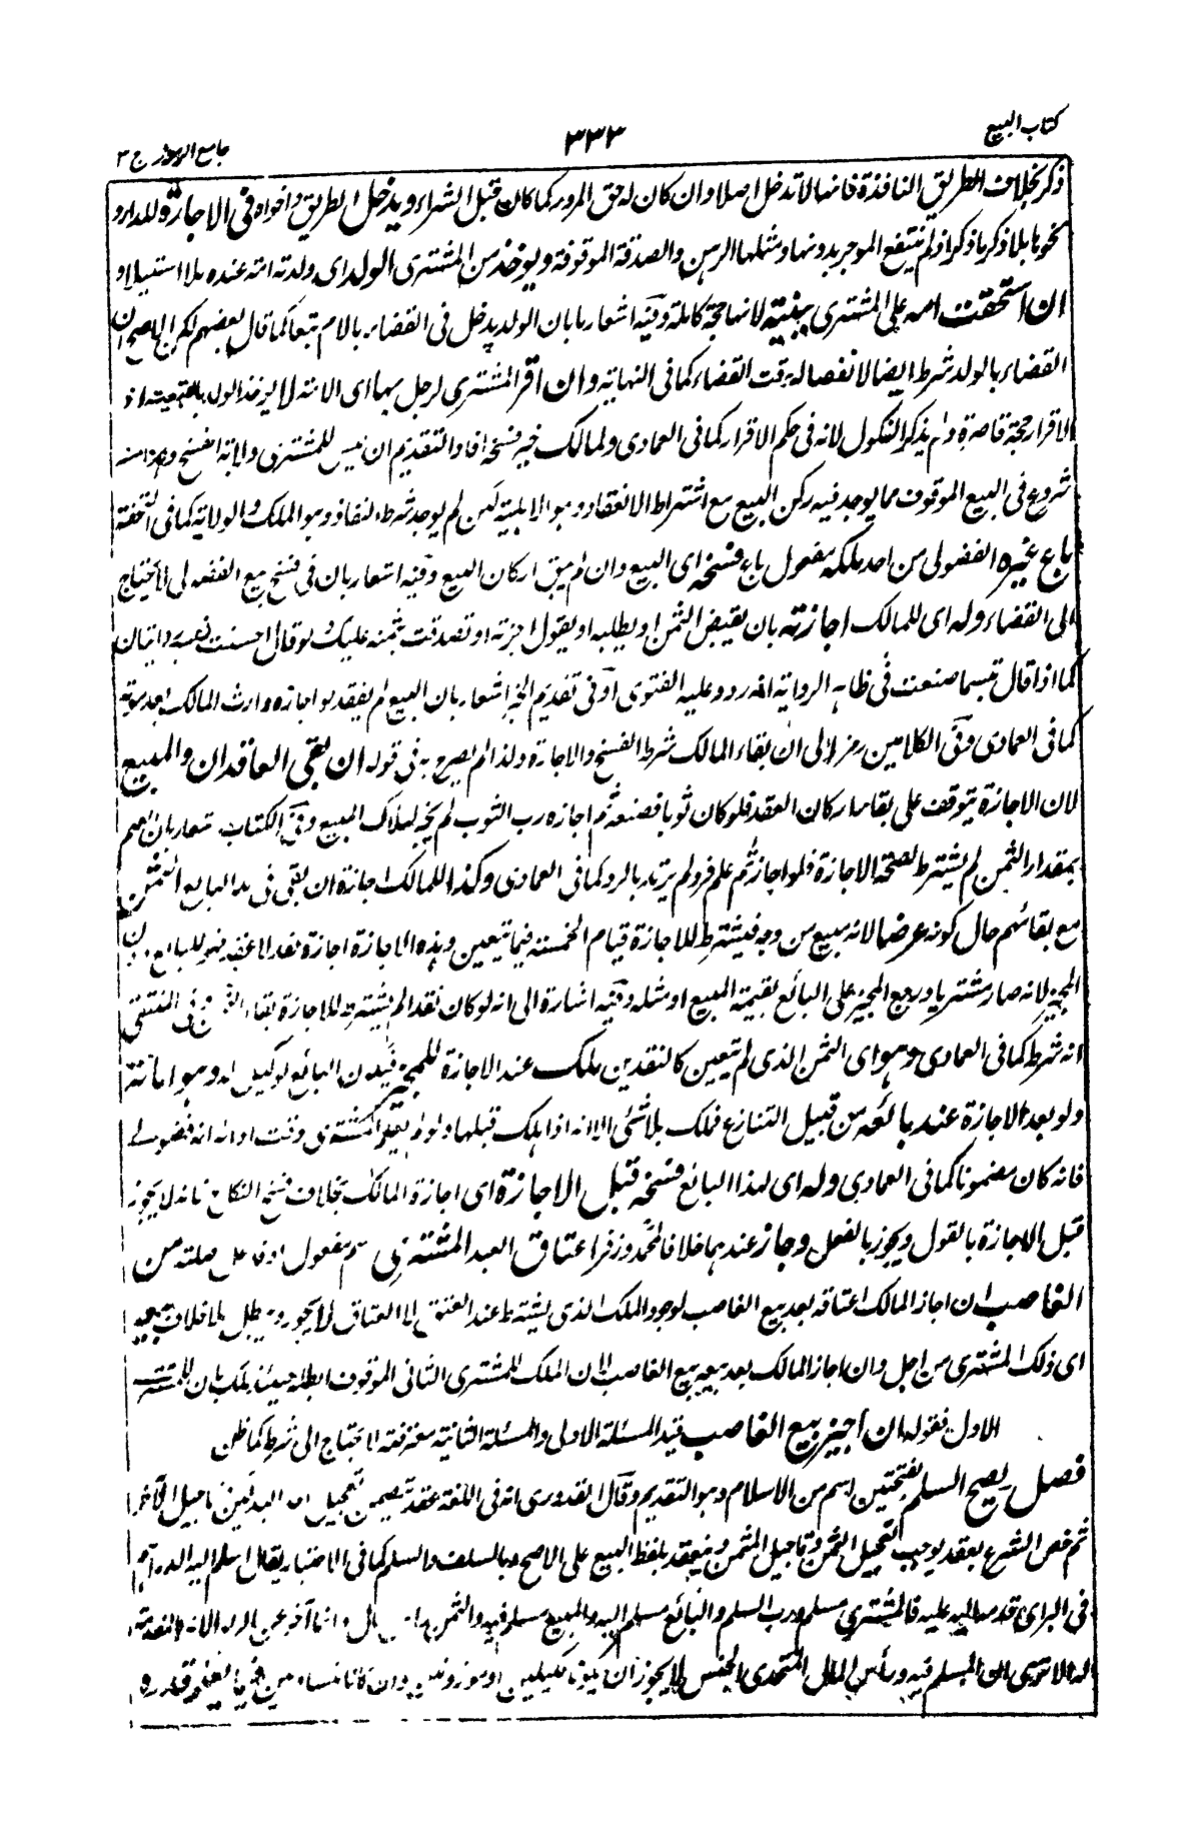 كتاب البيع
٣٣٣
جامع الرموز ج ٣
ذكر بخلاف الطريق النافذة فانها لا تدخل اصلا وان كان له حق المرور كما كان قبل الشراء ويدخل الطريق واخواه فى الاجارة للدار و
نحوها بلا ذكر ما ذكر اذ لم ينتفع الموجر بدونها ومثلها الرهن والصدقة الموقوفة ويوخذ من المشترى الولد اى ولدته امته عنده بلا استيلاد
ان استحقت امه على المشترى ببينة لانها حجة كاملة وفيه اشعار بان الولد يدخل فى القضاء بالام تبعا كما قال بعضهم لكن الاصح ان
القضاء بالولد شرط ايضا لانفصاله وقت القضاء كما فى النهاية وان اقر المشترى لرجل بها اى الامة لا يوخذ الولد بالتبعية اذ
الاقرار حجة قاصرة ولم يذكر النكول لانه فى حكم الاقرار كما فى العمادى ولمالك خير فسخه افاد التقديم ان ليس للمشترى ولاية الفسخ وهذا منه
شروع فى البيع الموقوف مما يوجد فيه ركن البيع مع اشتراط الانعقاد وهو الاهلية لكن لم يوجد شرط النفاذ وهو الملك والولاية كما فى التحفة
باع غيره الفضولى من احد ملكه مفعول باع فسخه اى البيع وان لم يبق اركان البيع وفيه اشعار بان فى فسخ بيع الفضولى لا يحتاج
الى القضاء وله اى للمالك اجازته بان يقبض الثمن او يطلبه او يقول اجزته او تصدقت بثمنه عليك ولو قال احسنت
كما اذا قال بئسما صنعت فى ظاهر الرواية انه رد وعليه الفتوى وفى تقديم الخ اشعار بان البيع لم ينفذ لو اجازه وارث المالك بعد موته
كما فى العمادى وفى الكلامين رمز الى ان بقاء المالك شرط الفسخ والاجازة ولذا لم يصرح به فى قوله ان بقى العاقدان والمبيع
لان الاجازة يتوقف على بقاء اركان العقد فلو كان ثوبا فصبغه ثم اجازه رب الثوب لم يجز لهلاك المبيع وفى الكتاب اشعار بان علم
بمقدار الثمن لم يشترط لصحة الاجازة فلو اجاز ثم علم فرد لم يرتد بالرد كما فى العمادى وكذا للمالك اجازة ان بقى فى يد البايع الثمن
مع بقائهم حال كونه عرضا لانه مبيع من وجه فيشترط للاجازة قيام الخمسة فيما يتعين وهذه الاجازة اجازة نقد لا عقد فهو للبائع
المجيز لانه صار مشتريا ورجع المجيز على البائع بقيمة المبيع او مثله وفيه اشارة الى انه لو كان نقدا لم يشترط للاجازة بقاء الثمن وفى المنتقى
انه شرط كما فى العمادى وهو اى الثمن الذى لم يتعين كالنقدين ملك عند الاجازة للمجيز فيكون البائع كوكيل له وهو امانة
ولو بعد الاجازة عند بائعه من قبيل التنازع فملك بلا شئ الا انه اذا هلك قبلها ولو لم يعلم المشترى وقت ادائه انه فضولى
فانه كان مضمونا كما فى العمادى وله اى لهذا البائع فسخه قبل الاجازة اى اجازة المالك بخلاف فسخ النكاح فانه لا يجوز
قبل الاجازة بالقول ويجوز بالفعل وجاز عندهما خلافا لمحمد وزفر اعتاق العبد المشترى مفعول او فاعل صلته من
الغاصب ان اجاز المالك اعتاقه بعد بيع الغاصب لوجود الملك الذى يشترط عند العتق لا الاعتاق لا يجوز ويبطل بلا خلاف بيعه
اى ذلك المشترى من اجل وان اجاز المالك بعد بيعه بيع الغاصب لان الملك للمشترى الثانى الموقوف ابطله حينئذ ملك بات للمشترى
الاول فقوله ان اجيز بيع الغاصب قيد المسئلة الاولى والمسئلة الثانية مفترقة لا يحتاج الى شرط كما ظن
فصل يصح السلم بفتحتين اسم من الاسلام وهو التقديم وقال القدورى انه فى اللغة عقد يتضمن تعجيل احد البدلين تاجيل الآخر
ثم خص الشرع بعقد يوجب تعجيل الثمن وتاجيل المثمن وينعقد بلفظ البيع على الاصح وبالسلف والسلم كما فى الاختيار يقال اسلم اليه الدراهم
فى البر اى قدمها اليه عليه فالمشترى مسلم ورب السلم والبائع مسلم اليه والمبيع مسلم فيه والثمن راس المال وانما آخر عن
المسلم فيه ورأس المال المتحدى الجنس لا يجوز ان يكونا مكيلين او موزونين وان كانا قدره